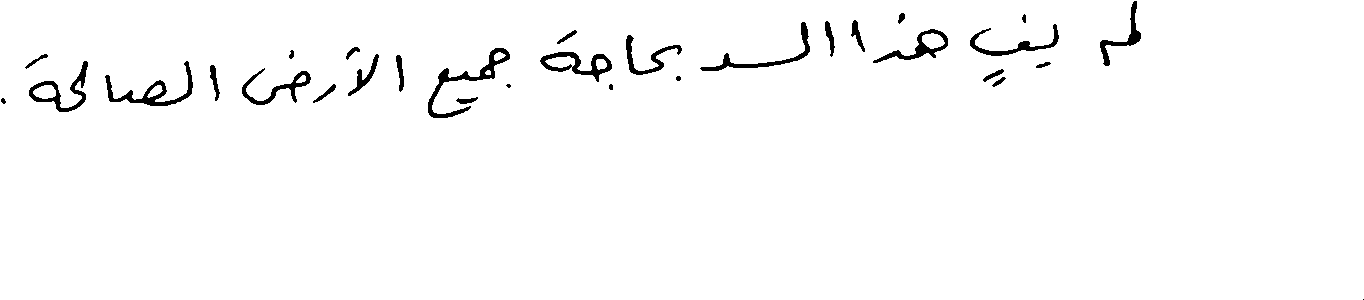 لم يفِ هذا السد بحاجة جميع الأرض الصالحة.